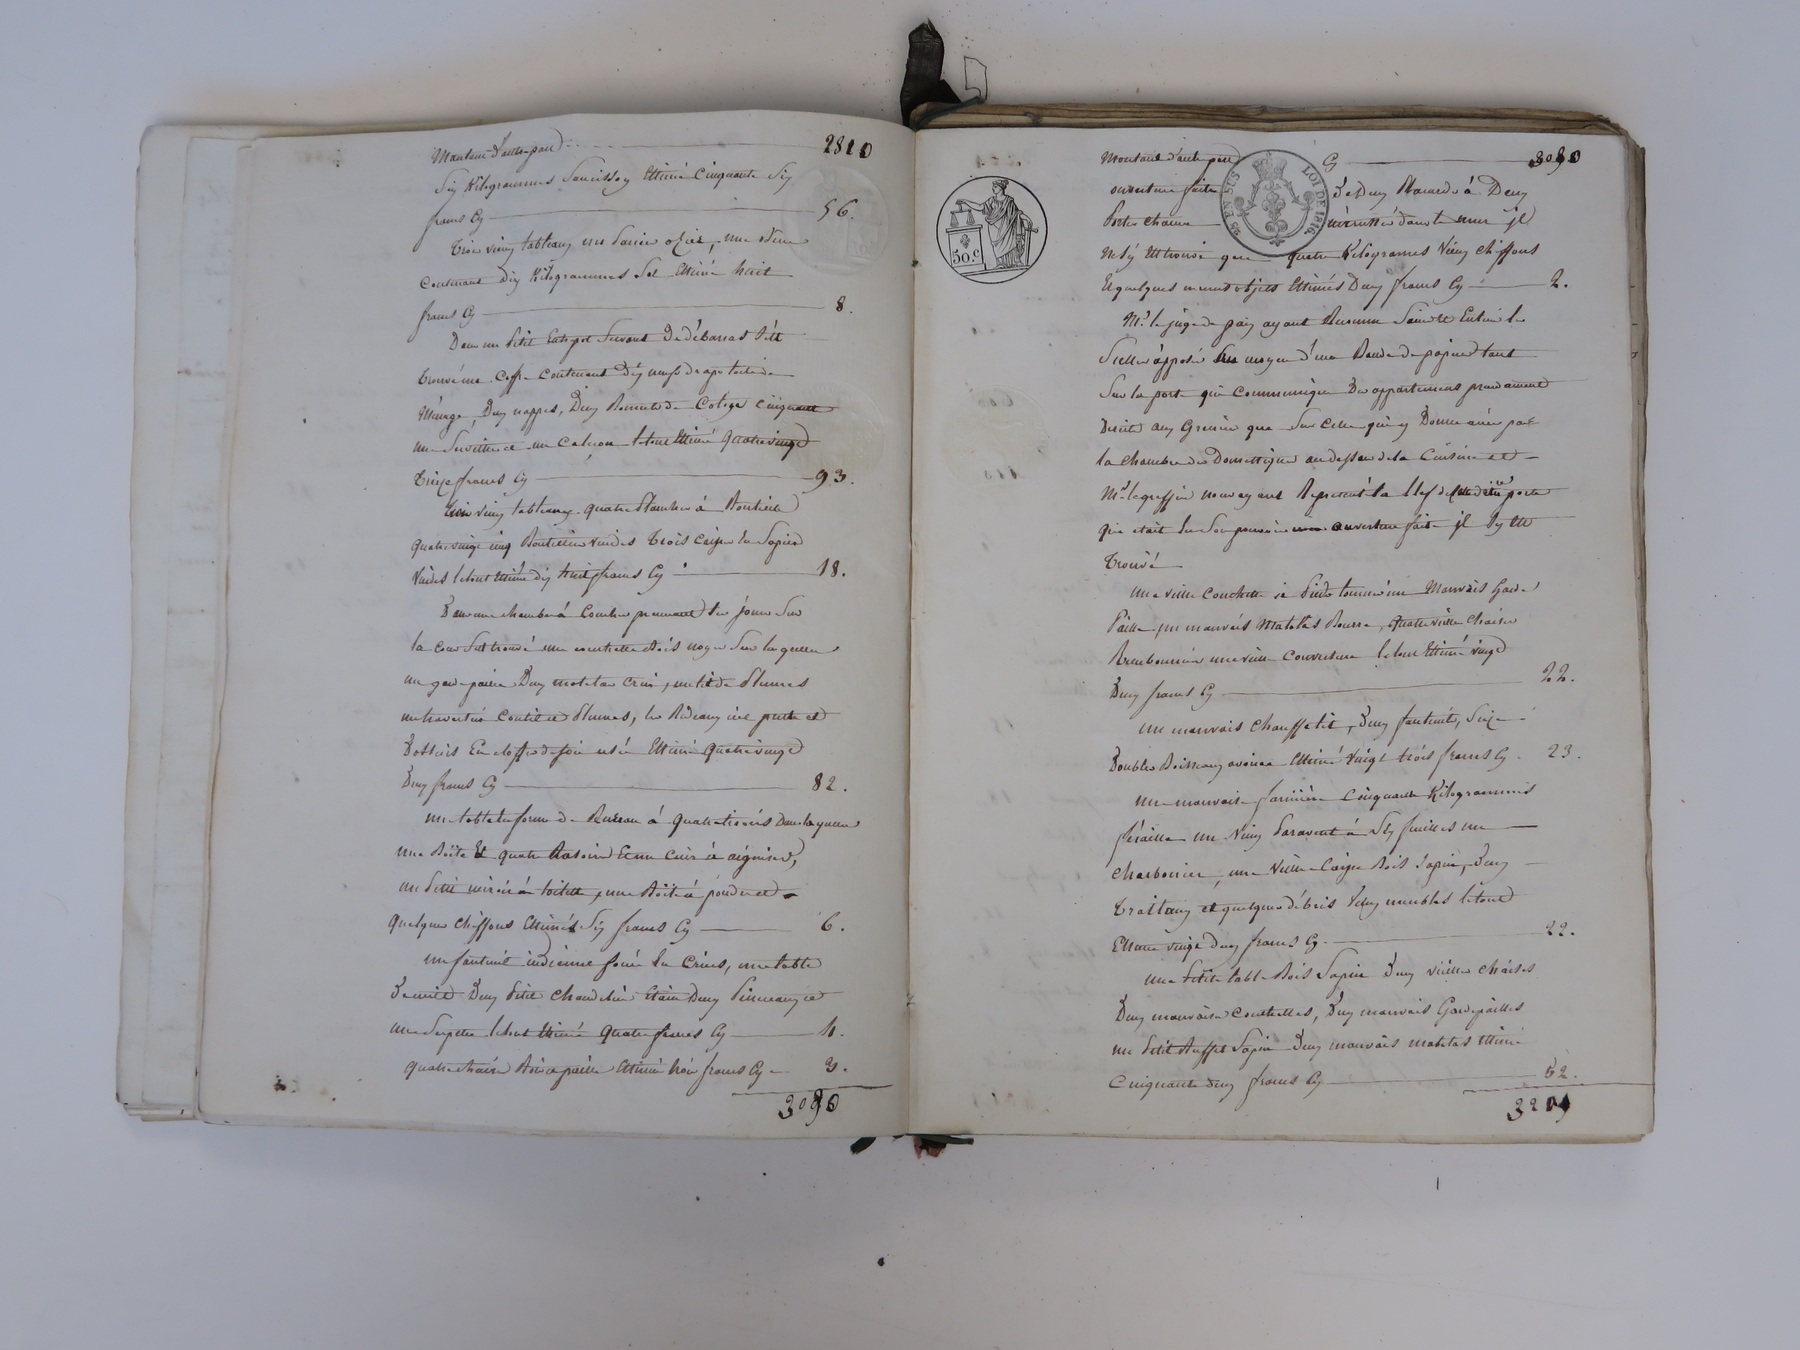 Montant d'autre part 2810
Six Kilogrammes Saucisson Estimé Cinquante Six
francs Cy 56.
Trois vieux tableaux un Panier osier, une
Contenant dix Kilogrammes Sel Estimé huit
francs Cy 8.
Dans un Petit Entrepot Servant De débarras S'est
trouvé un Coffre Contenant dix neuf draps toile de
Ménage, Deux nappes, Deux Bonnets de Coton Cinquante
une Serviette et un Caleçon le tout Estimé Quatre vingt
Treize francs Cy 93.
Trois vieux tableaux quatre Planches à Bouteille
quatre vingt cinq Bouteilles vuides Trois Caisses En Sapin
Vuides le tout Estimé dix huit francs Cy 18.
Dans une chambre à Coucher prennant Ses jours Sur
la Cour S'est trouvé une couchette Bois noyer Sur laquelle
un garde paille Deux matelas Crin, un lit de Plumes
un traversin Coutil et Plumes, les Rideaux ciel pente et
Dossiers En étoffe de soie usée Estimé Quatre vingt
Deux francs Cy 82.
une table En forme de Bureau à Quatre tiroirs Dans laquelle
une Boîte Et quatre Rasoirs Et un Cuir à aiguiser,
un Petit miroir à toilette, une Boîte à poudre et
quelques Chiffons Estimés Six francs Cy 6.
un fauteuil indienne foncé En Crins, une table
De nuit Deux Petits Chandeliers Etain Deux et
une le tout Estimé Quatre francs Cy 4.
Quatre chaises Bois et paille Estimé trois francs Cy 3.
3080
Montant d'autre part Cy 3080
ouverture faite De Deux Placards à Deux
Portes chacun incrusté dans le mur il
ne S'y est trouvé que quatre Kilogrammes Vieux Chiffons
Et quelques menus objets Estimés Deux francs Cy 2.
Mr. le juge de paix ayant Reconnu Sain et Entier le
Scellé apposé au moyen d'une Bande de papier tant
Sur la porte qui Communique Des appartemens
aux Greniers que Sur Celle qui y Donne accès par
la Chambre des Domestiques au dessus de la Cuisine et
Mr. le greffier nous ayant Représenté la Clef de porte
qui était En Son pouvoir ouverture faite il S'y est
Trouvé
une vieille Couchette un Mauvais Garde
Paille, un mauvais Matelas Bourre, quatre vieilles Chaises
une vieille Couverture le tout Estimé vingt
Deux francs Cy 22.
un mauvais Chauffe lit, Deux fauteuils, Seize
Doubles Boisseaux avoine Estimé Vingt trois francs Cy 23.
une mauvaise Cinquante Kilogrammes
féraille un Vieux Paravent à Six feuilles un
Charbonnier, une Vieille Caisse Bois Sapin, Deux
Traiteaux et quelques débris Vieux meubles le tout
Estimé vingt Deux francs Cy 22.
une Petite table Bois Sapin Deux vieilles Chaises
Deux mauvaises Couchettes, Deux mauvais Gardepailles
un Petit Buffet Sapin Deux mauvais matelas Estimé
Cinquante deux francs Cy 52.
25 EN SUS
LOI DE 1816.
50.C